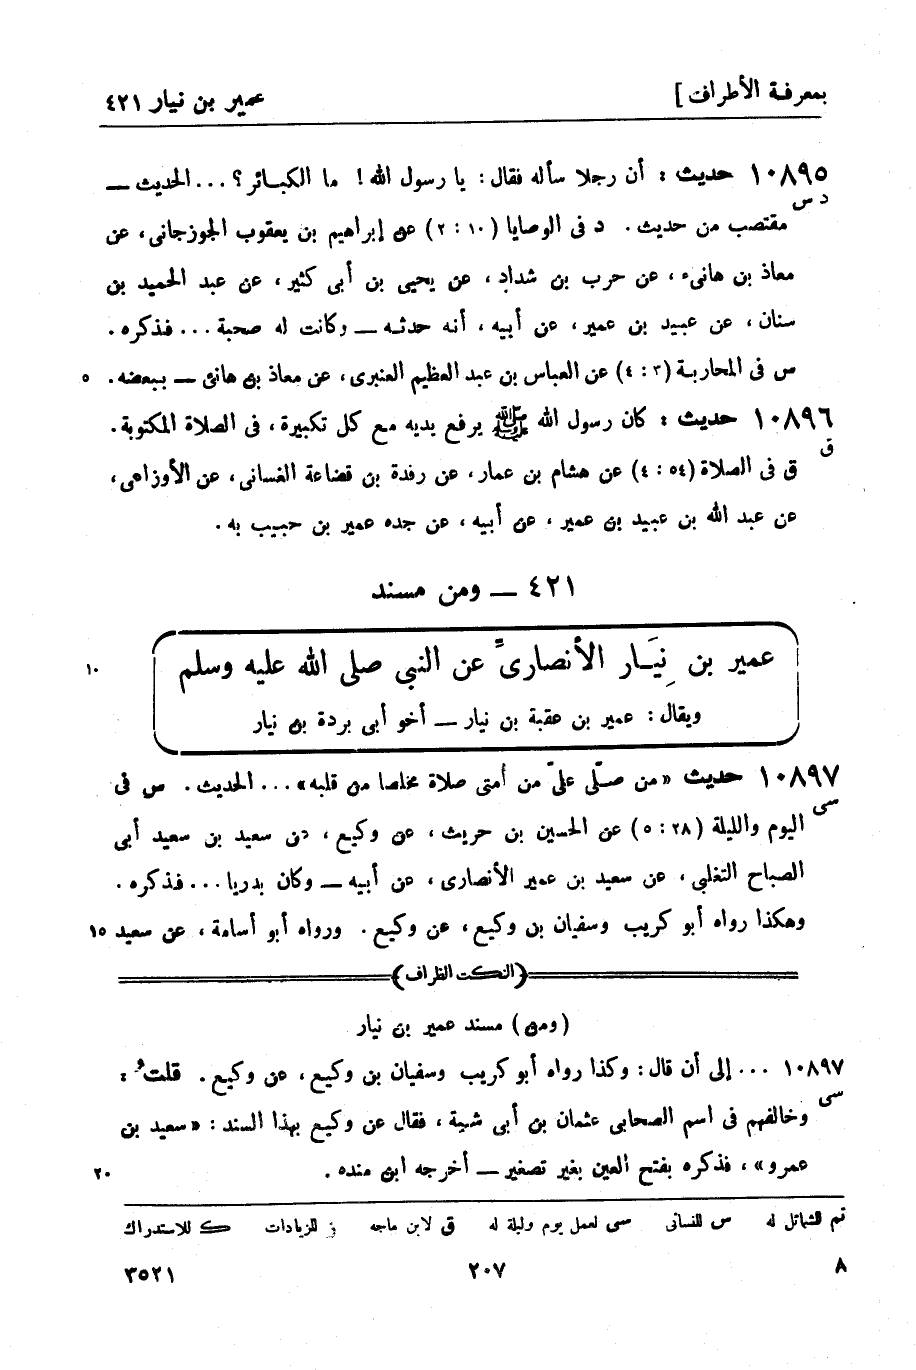 بمعرفة الأطراف ] عمير بن نيار ٤٢١
١٠٨٩٥ حديث : أن رجلا سأله فقال : يا رسول الله ! ما الكبائر ؟ ... الحديث —
د س
مقتصب من حديث . د فى الوصايا (١٠ : ٢) عن إبراهيم بن يعقوب الجوزجانى ، عن
معاذ بن هانىء ، عن حرب بن شداد ، عن يحيى بن أبى كثير ، عن عبد الحميد بن
سنان ، عن عبيد بن عمير ، عن أبيه ، أنه حدثه — وكانت له صحبة ... فذكره .
س فى المحاربة (٣ : ٤) عن العباس بن عبد العظيم العنبرى ، عن معاذ بن هانئ — ببعضه . ٥
١٠٨٩٦ حديث : كان رسول الله ﷺ يرفع يديه مع كل تكبيرة ، فى الصلاة المكتوبة .
ق
ق فى الصلاة (٥٤ : ٤) عن هشام بن عمار ، عن رفدة بن قضاعة الغسانى ، عن الأوزاعى ،
عن عبد الله بن عبيد بن عمير ، عن أبيه ، عن جده عمير بن حبيب به .
٤٢١ — ومن مسند
عمير بن نِيَار الأنصارىّ عن النبي صلى الله عليه وسلم ١٠
ويقال : عمير بن عقبة بن نيار — أخو أبى بردة بن نيار
١٠٨٩٧ حديث «من صلّى علىّ من أمتى صلاة مخلصا من قلبه» ... الحديث . س فى
سى
اليوم والليلة (٢٨ : ٥) عن الحسين بن حريث ، عن وكيع ، عن سعيد بن سعيد أبى
الصباح التغلبي ، عن سعيد بن عمير الأنصارى ، عن أبيه — وكان بدريا ... فذكره .
وهكذا رواه أبو كريب وسفيان بن وكيع ، عن وكيع . ورواه أبو أسامة ، عن سعيد ١٥
(النكت الظراف)
(ومن) مسند عمير بن نيار
١٠٨٩٧ ... إلى أن قال : وكذا رواه أبو كريب وسفيان بن وكيع ، عن وكيع . قلتُ :
سى
وخالفهم فى اسم الصحابى عثمان بن أبى شيبة ، فقال عن وكيع بهذا السند : «سعيد بن
عمرو» ، فذكره بفتح العين بغير تصغير — أخرجه ابن منده . ٢٠
تم للشمائل له س للنسائى سى لعمل يوم وليلة له ق لابن ماجه ز للزيادات ك للاستدراك
٨ ٢٠٧ ٣٥٢١